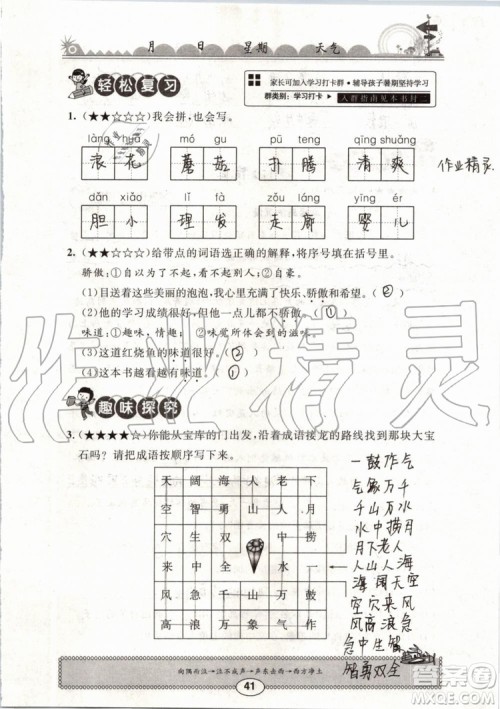 月 日 星期 天气
轻松复习
家长可加入学习打卡群·辅导孩子暑期坚持学习
群类别：学习打卡 入群指南见本书封二
1. (★★☆☆☆)我会拼，也会写。
làng huā mó gu pū téng qīng shuǎng
浪花 蘑菇 扑腾 清爽
作业精灵
dǎn xiǎo lǐ fà zǒu láng yīng ér
胆小 理发 走廊 婴儿
2. (★★☆☆☆)给带点的词语选正确的解释，将序号填在括号里。
骄傲：①自以为了不起，看不起别人；②自豪。
(1)目送着这些美丽的泡泡，我心里充满了快乐、骄傲和希望。(②)
(2)他的学习成绩很好，但他一点儿都不骄傲。(①)
味道：①趣味，情趣；②味觉所体会到的滋味。
(3)这道红烧鱼的味道很好。(②)
(4)这本书越看越有味道。(①)
趣味探究
3. (★★★★☆)你能从宝库的门出发，沿着成语接龙的路线找到那块大宝
石吗？请把成语按顺序写下来。
天 阔 海 人 老 下
空 智 勇 山 人 月
穴 生 双 中 捞
来 中 全 水 一
风 急 气 万 千 鼓
高 浪 山 千 气 作
一鼓作气
气象万千
千山万水
水中捞月
月下老人
人山人海
海阔天空
空穴来风
风高浪急
急中生智
智勇双全
向隅而泣→泣不成声→声东击西→西方净土
41
作业精灵
答案圈